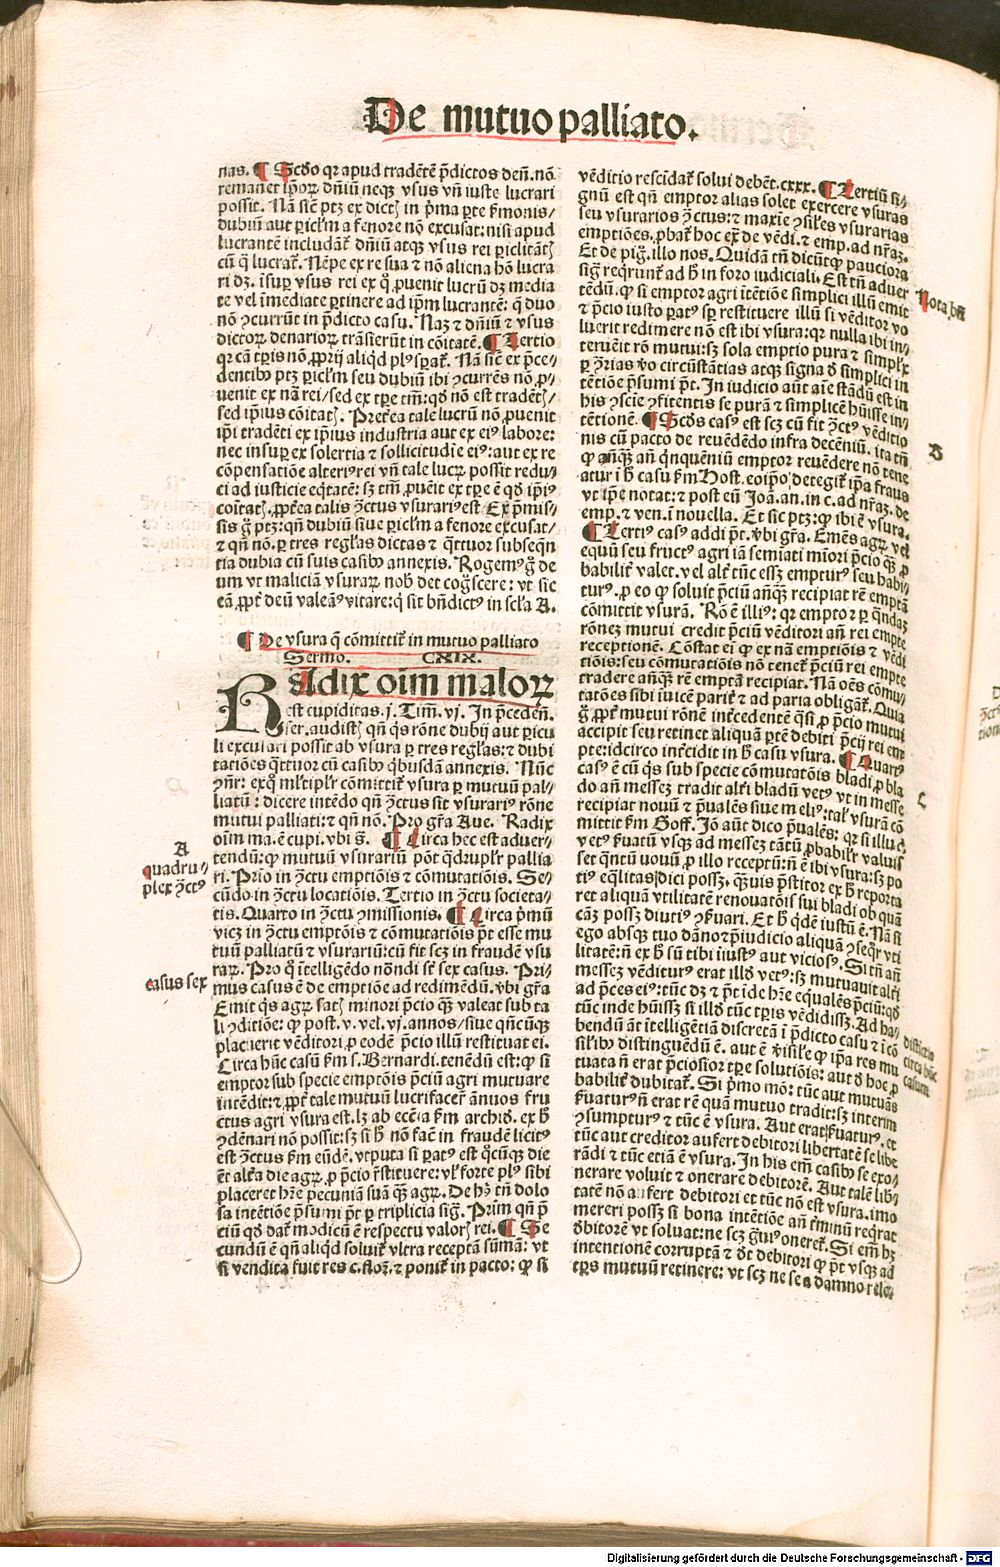 De mutuo palliato.
nas. ¶ Scďo qr apud tradētē p̄dictos deň. nō
remanet ip̄oꝝ dn̄iū neqꝫ vsus vn̄ iuste lucrari
possit. Nā sicē ptꝫ ex dictꝭ in p̄ma ꝑte ẜmonis/
dubiū aut ꝑicl'm a fenore nō excusat: nisi apud
lucrantē includat̄ dn̄iū atqꝫ vsus rei ꝑiclitātꝭ
cū q̇ lucrat̄. Nēpe ex re sua ⁊ nō aliena hō lucra
ri dꝫ. isuꝑ vsus rei ex q̊ ꝓuenit lucrū dꝫ media
te vel īmediate ꝑtinere ad ip̄m lucrantē: q̄ duo
nō ꝯcurrūt in p̄dicto casu. Naꝫ ⁊ dn̄iū ⁊ vsus
dictoꝝ denarioꝝ trāsierūt in cōitatē. ¶ Tertio
qr cā tꝑis nō ꝓprij aliqd plꝰ sꝑat̄. Nā sicē ex p̄ce-
dentibꝰ ptꝫ ꝑicl'm seu dubiū ibi ꝯcurrēs nō ꝓ-
uenit ex nā rei/ sed ex tꝑe tm̄: qd̄ nō est tradētꝭ/
sed ip̄ius cōitatꝭ. Pretēa tale lucrū nō ꝓuenit
ip̄i tradēti ex ip̄ius industria aut ex eiꝰ labore:
nec insuꝑ ex solertia ⁊ sollicitudīe eiꝰ: aut ex re
cōpensatiōe alteriꝰ rei vn̄ tale lucꝝ possit redu-
ci ad iusticie eq̇tatē: sꝫ tm̄ ꝓuēit ex tꝑe ē qd̄ ip̄iꝰ
cōitatꝭ. ꝓptēa talis ꝯctus vsurariꝰ est Ex p̄mis-
sis g̊ ptꝫ: qn̄ dubiū siue ꝑicl'm a fenore excusat/
⁊ qn̄ nō. ꝑ tres regl'as dictas ⁊ q̇ttuor subseqn̄
tia dubia cū suis casibꝰ annexis. Rogemꝰ g̊ de
um vt maliciā vsuraꝝ nob̄ det cog̊scere: vt sic
eā ꝓpt̄ deū valeāꝰ vitare: q̇ sit bn̄dictꝰ in scl'a A.
¶ De vsura q̄ cōmittit̄ in mutuo palliato
Sermo. CXIX.
RAdix oīm maloꝝ
est cupiditas. j. Tim̄. vj. In p̄ceden̄.
ser. audistꝭ qn̄ q̄s rōne dubij aut ꝑicu
li excusari possit ab vsura ꝑ tres regl'as: ⁊ dubi
tatiōes q̇ttuor cū casibꝰ q̇busdā annexis. Nūc
ꝯn̄r: exq̊ ml'tipl'r cōmittit̄ vsura ꝑ mutuū pal-
liatū: dicere intēdo qn̄ ꝯctus sit vsurariꝰ rōne
mutui palliati: ⁊ qn̄ nō. Pro gr̄a Aue. Radix
oīm ma. ē cupi. vbi s̄. ¶ Circa hec est aduer-
tendū: ꝙ mutuū vsurariū pōt q̇drupl'r pallia
ri. Prīo in ꝯctu emptiōis ⁊ cōmutatiōis. Se-
cūdo in ꝯctu locatiōis. Tertio in ꝯctu societa-
tis. Quarto in ꝯctu ꝯmissionis. ¶ Circa p̄mū
vicꝫ in ꝯctu emptōis ⁊ cōmutatiōis p̄t esse mu
tuū palliatū ⁊ vsurariū: cū fit scꝫ in fraudē vsu
raꝝ. Pro q̊ ītelligēdo nōndi sūt sex casus. Pri-
mus casus ē de emptiōe ad redimēdū. vbi gr̄a
Emit q̇s agꝝ satꝭ minori p̄cio qꝫ valeat sub ta
li ꝯditiōe: ꝙ post. v. vel. vj. annos/ siue qn̄cūqꝫ
placuerit vēditori ꝓ eodē p̄cio illū restituat ei.
Circa hūc casū ẜm s. Bernardi. tenēdū est: ꝙ si
emptor sub specie emptōis p̄ciū agri mutuare
intēdit: ⁊ ꝓpt̄ tale mutuū lucrifacer̄ ānuos fru
ctus agri vsura est. lꝫ ab ecēia ẜm archid. ex h̄
ꝯdēnari nō possit: sꝫ si h̄ nō fac̄ in fraudē licitꝰ
est ꝯctus ẜm eūdē. vtputa si ꝑatꝰ est q̊cūqꝫ die
ēt altēa die agꝝ ꝓ p̄cio r̄stituere: vl' forte plꝰ sibi
placeret hr̄e pecuniā suā qꝫ agꝝ. De hꝰ tn̄ dolo
sa intētiōe p̄sumi p̄t ꝑ triplicia sig̊. Prim qn̄ p̄
ciū qd̄ dat̄ modicū ē respectu valorꝭ rei. ¶ Se
cundū ē qn̄ aliqd soluit̄ vltra receptā sūmā: vt
si vendita fuit res c. floꝝ. ⁊ ponit̄ in pacto: ꝙ si
A
quadru-
plex ꝯctꝰ
casus sex
vēditio rescidat̄ solui debēt. cxxx. ¶ Tertiū si-
gnū est qn̄ emptor alias solet exercere vsuras
seu vsurarios ꝯctus: ⁊ maxīe ꝯsil'es vsurarias
emptiōes. ꝓbat̄ hoc ex̄ de vēdi. ⁊ emp. ad nr̄aꝫ.
Et de pig̊. illo nos. Quidā tn̄ dicūt ꝙ pauciora
sig̊ reqrunt̄ ad h̄ in foro iudiciali. Est tn̄ aduer
tēdū. ꝙ si emptor agri ītētiōe simplici illū emit
⁊ p̄cio iusto ꝑatꝰ sꝑ restituere illū si vēditor vo
luerit redimere nō est ibi vsura: qr nulla ibi in-
teruēit rō mutui: sꝫ sola emptio pura ⁊ simpl'x
ꝑ ꝯrias v̊o circūstātias atqꝫ signa ꝺ simplici in
tētiōe p̄sumi p̄t. In iudicio aūt aīe stādū est in
his ꝯsciē ꝯfitentis se purā ⁊ simplicē hūisse in-
tētionē. ¶ Scďs casꝰ est scꝫ cū fit ꝯctꝰ vēditio
nis cū pacto de reuēdēdo infra decēniū. ita tn̄
ꝙ añqꝫ an̄ q̇nquēniū emptor reuēdere nō tene
atur ī h̄ casu ẜm Host. eoip̄o detegit̄ ip̄a fraus
vt ip̄e notat: ⁊ post eū Joā. an. in c. ad nr̄aꝫ. de
emp. ⁊ ven. ī nouella. Et sic ptꝫ: ꝙ ibi ē vsura.
¶ Tertiꝰ casꝰ addi p̄t. v̄bi gr̄a. Emēs agꝝ vel
equū seu fructꝰ agri iā semiati mīori p̄cio qꝫ ꝓ
babilit̄ valet. vel alt̄ tūc essꝫ empturꝰ seu habi-
turꝰ. ꝓ eo ꝙ soluit p̄ciū añqꝫ recipiat rē emptā
cōmittit vsurā. Rō ē illiꝰ: qr emptor ꝑ q̇ndaꝫ
rōneꝫ mutui credit p̄ciū vēditori an̄ rei empte
receptionē. Cōstat ei ꝙ ex nā emptiōis ⁊ vēdi
tiōis: seu cōmutatiōis nō tenet̄ p̄ciū rei empte
tradere añqꝫ rē emptā recipiat. Nā oēs cōmu-
tatōes sibi iuicē parit̄ ⁊ ad paria obligāt̄. Quia
g̊ ꝓpt̄ mutui rōnē intēcedentē q̇si ꝓ p̄cio mutui
accipit seu retinet aliquā ꝑtē debiti p̄cij rei em
pte: idcirco intēcidit in h̄ casu vsura. ¶ Quartꝰ
casꝰ ē cū q̇s sub specie cōmutatōis bladi ꝓ bla
do an̄ messeꝫ tradit alt̄i bladū vetꝰ vt in messe
recipiat nouū ⁊ p̄ualēs siue meliꝰ: talꝰ vsurā cō
mittit ẜm Goff. Jō aūt dico p̄ualēs: qꝫ si illud
vetꝰ ẜuatū vsqꝫ ad messeꝫ tātū ꝓbabilit̄ valuis
set q̇ntū nouū ꝓ illo receptū: n̄ ē ibi vsura: sꝫ po
tiꝰ eq̇litas dici possꝫ. q̇uis p̄stitor ex h̄ reporta
ret aliquā vtilitatē renouatōis sui bladi ob quā
cāꝫ possꝫ diutiꝰ ꝯẜuari. Et h̄ q̇dē iustū ē. Nā si
ego absqꝫ tuo dāno ⁊ p̄iudicio aliquā ꝯseq̇r vti
litatē: n̄ ex h̄ sū tibi iiustꝰ aut viciosꝰ. Si tn̄ an̄
messeꝫ vēditurꝰ erat illd̄ vetꝰ: sꝫ mutuauit alt̄i
ad p̄ces eiꝰ: tūc dꝫ ⁊ p̄t ide hr̄e equalēs p̄ciū: qd̄
tūc inde hūissꝫ si illd̄ tūc tꝑis vēdidissꝫ. Ad ha-
bendū āt ītelligētiā discretā ī p̄dicto casu ⁊ ī cō
sil'ibꝰ distinguēdū ē. aut ē v̊isil'e ꝙ ip̄a res mu
tuata n̄ erat p̄ciosior tꝑe solutiōis: aut ꝺ hoc ꝓ
babilit̄ dubitat̄. Si p̄mo mō: tūc aut mutuās
ẜuaturꝰ n̄ erat rē quā mutuo tradit: sꝫ interim
ꝯsumpturꝰ ⁊ tūc ē vsura. Aut erat ẜuaturꝰ. et
tūc aut creditor aufert debitori libertatē se libe
rādi ⁊ tūc etiā ē vsura. In his em̄ casibꝰ se exo-
nerare voluit ⁊ onerare debitorē. Aut talē lib̄-
tatē nō aufert debitori et tūc nō est vsura. imo
mereri possꝫ si bona intētiōe an̄ t̄minū reqrat
ꝺbitorē vt soluat: ne scꝫ g̊uiꝰ oneret̄. Si em̄ hꝫ
intentionē corruptā ⁊ ꝺt debitori ꝙ p̄t vsqꝫ ad
tꝑs mutuū retinere: vt scꝫ ne se a damno rele-
Nota bn̄
B
C
distictio
circa hūc
casum
Digitalisierung gefördert durch die Deutsche Forschungsgemeinschaft - DFG